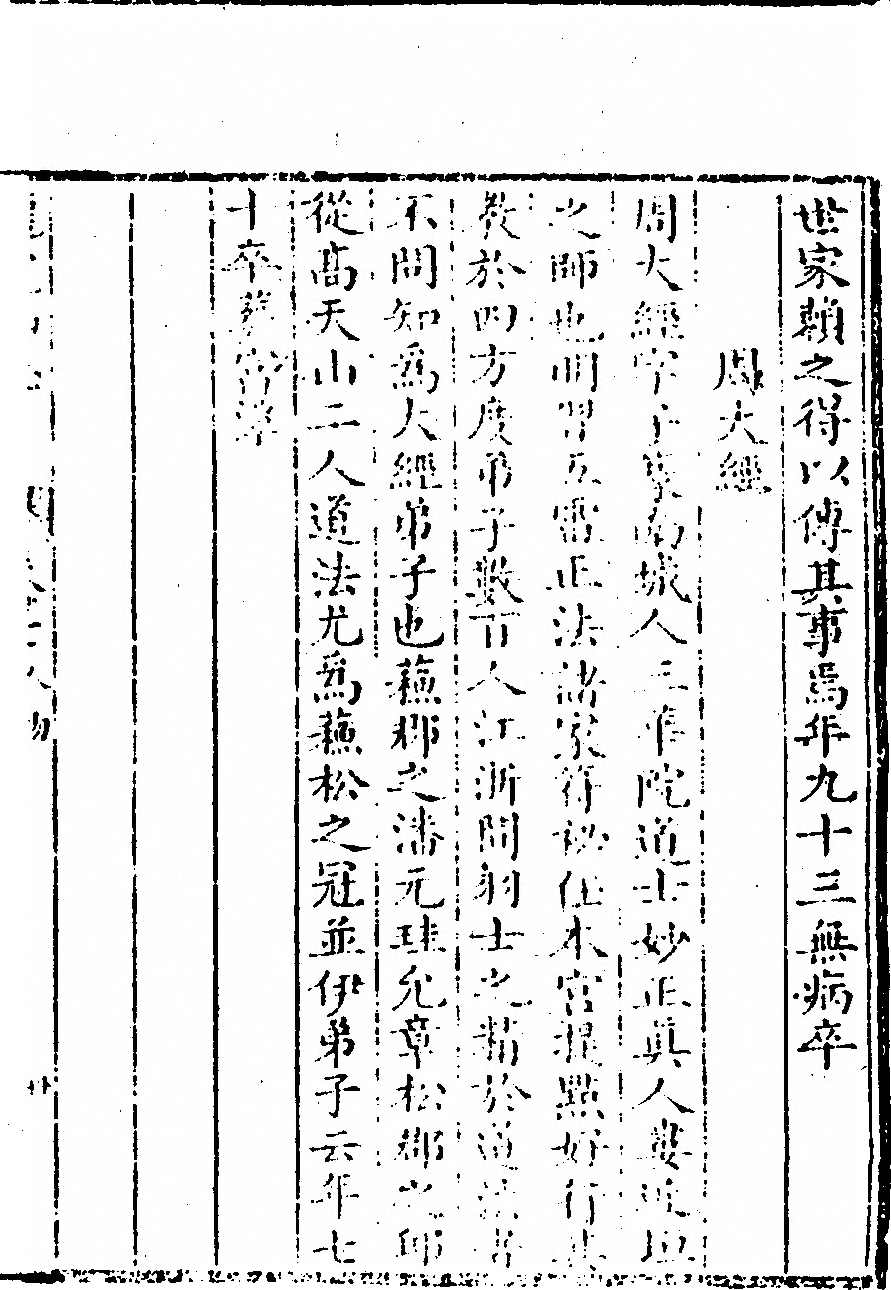 世家賴之得以傳其事焉年九十三無病卒
周大經
周大經字子 南城人三華院道士妙正真人婁近垣
之師也明習五雷正法諸家符祕任本宮提點好行其
教於四方度弟子數百人江浙間羽士之精於道法者
不問知爲大經弟子也蘇郡之潘元珪允章松郡之邱
從高天山二人道法尤爲蘇松之冠並伊弟子云年七
十卒葬 潭